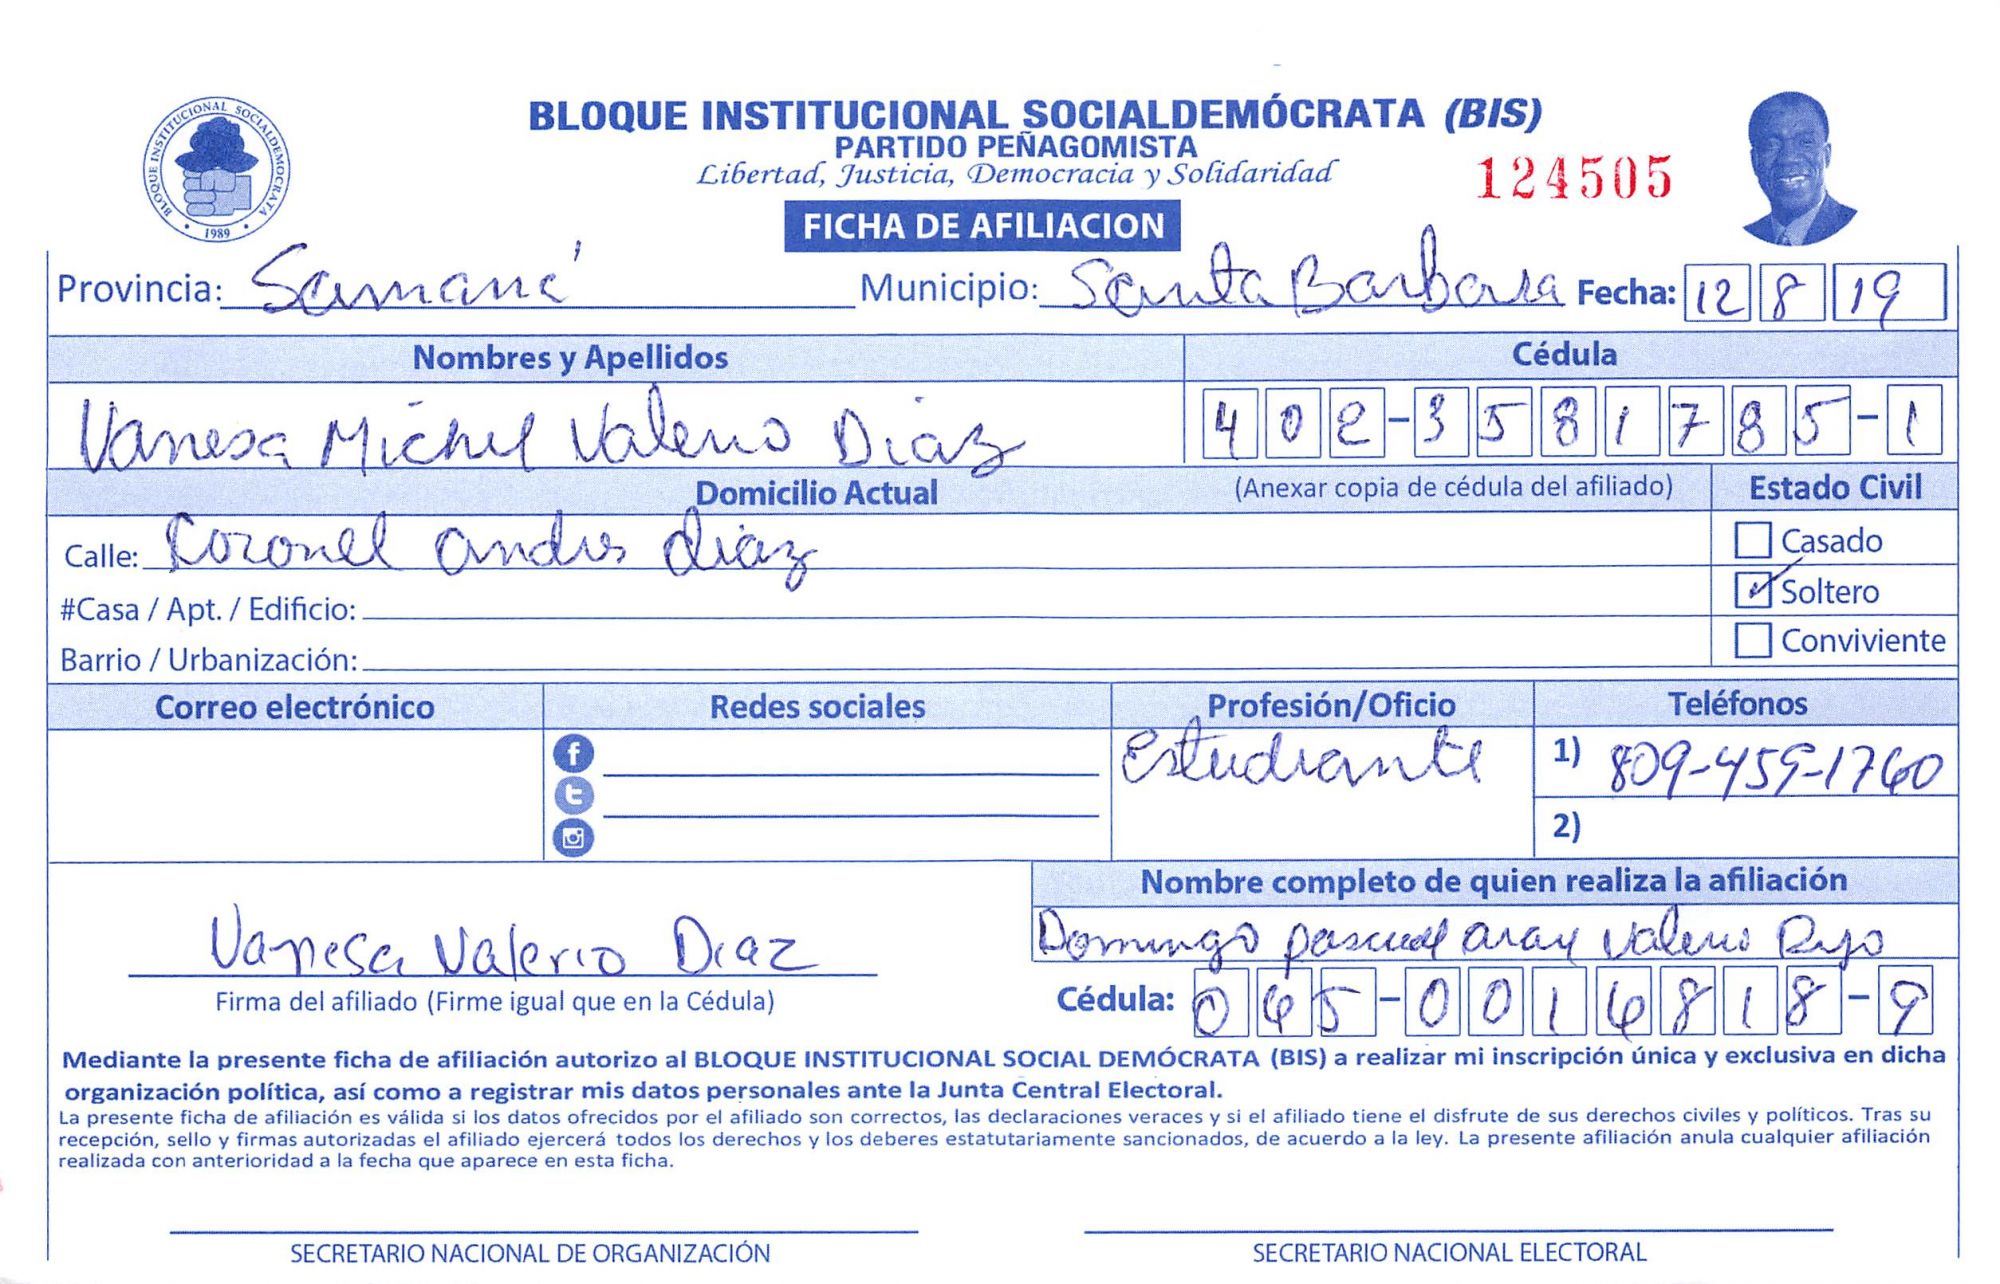 BLOQUE INSTITUCIONAL SOCIALDEMÓCRATA (BIS)
PARTIDO PEÑAGOMISTA
Libertad, Justicia, Democracia y Solidaridad
124505
BLOQUE INSTITUCIONAL SOCIALDEMOCRATA
1989
FICHA DE AFILIACION
Provincia: Samaná Municipio: Santa Barbara Fecha: 12 8 19
Nombres y Apellidos Cédula
Vanesa Michel Valerio Diaz 402-3581785-1
Domicilio Actual (Anexar copia de cédula del afiliado) Estado Civil
Calle: Coronel Andres diaz Casado
#Casa / Apt. / Edificio: Soltero
Barrio / Urbanización: Conviviente
Correo electrónico Redes sociales Profesión/Oficio Teléfonos
Estudiante 1) 809-459-1760
2)
Nombre completo de quien realiza la afiliación
Vanesa Valerio Diaz Domingo pascual Valerio
Firma del afiliado (Firme igual que en la Cédula) Cédula: 065-0016818-9
Mediante la presente ficha de afiliación autorizo al BLOQUE INSTITUCIONAL SOCIAL DEMÓCRATA (BIS) a realizar mi inscripción única y exclusiva en dicha
organización política, así como a registrar mis datos personales ante la Junta Central Electoral.
La presente ficha de afiliación es válida si los datos ofrecidos por el afiliado son correctos, las declaraciones veraces y si el afiliado tiene el disfrute de sus derechos civiles y políticos. Tras su
recepción, sello y firmas autorizadas el afiliado ejercerá todos los derechos y los deberes estatutariamente sancionados, de acuerdo a la ley. La presente afiliación anula cualquier afiliación
realizada con anterioridad a la fecha que aparece en esta ficha.
SECRETARIO NACIONAL DE ORGANIZACIÓN SECRETARIO NACIONAL ELECTORAL